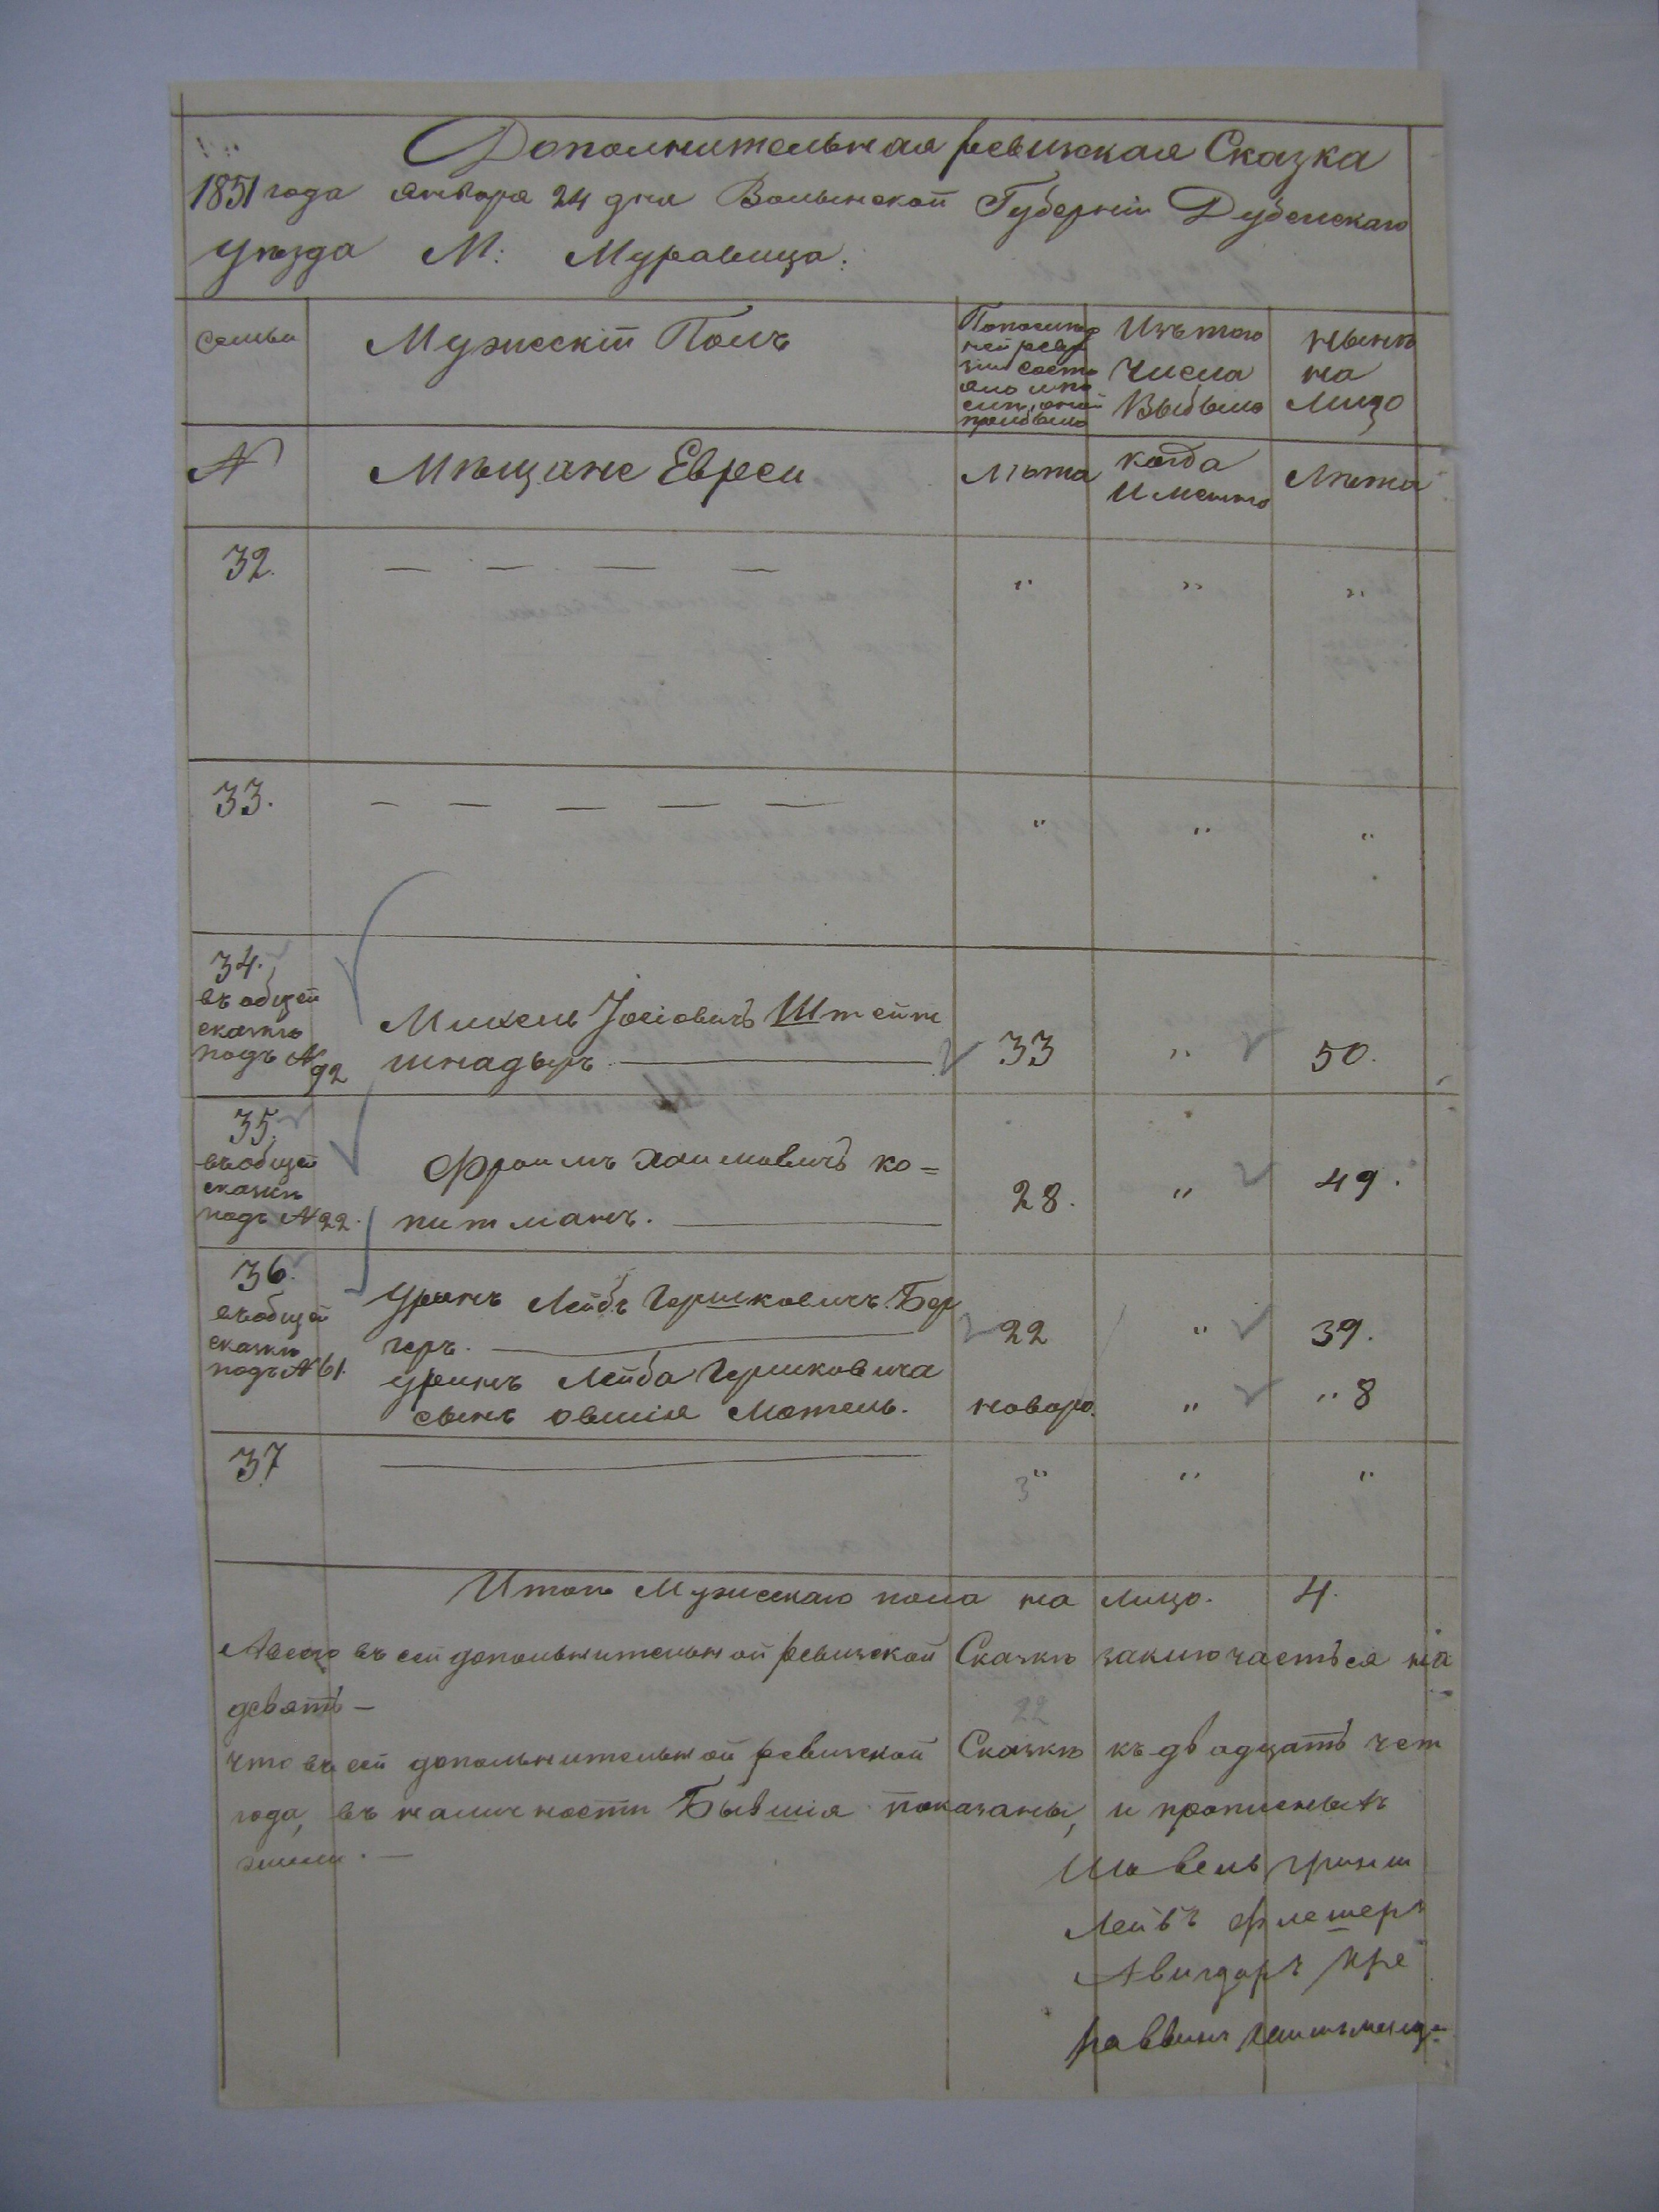 Дополнительная ревижская Сказка
1851 года января 24 дня Волынской Губерніи Дубенскаго
Уѣзда М: Муравица.
Семьи
Мужескій Полъ
По послѣд
ней реви
зіи состо
яло и по
слѣ оной
прибыло
Изъ того
числа
Выбыло
нынѣ
на
лицо
№
Мѣщане Евреи
Лѣта
когда
Именно
Лѣта
32.
— — — —
"
"
"
33.
— — — — —
"
"
"
34.
въ общей
сказкѣ
подъ №
92
Михель Іосіовичъ Штейн
шнадыръ.
33
"
50.
35.
въ общей
сказкѣ
подъ № 22.
Фроимъ Хаимовичъ ко=
питманъ.
28.
"
49.
36.
въ общей
сказкѣ
подъ № 61.
Уринъ Лейбъ Гершковичъ Бер
геръ.
22
"
39.
Уринъ Лейба Гершковича
сынъ овшія Мотель.
новоро.
"
" 8
37
3 "
"
"
Итого Мужескаго пола на лицо. 4.
А всего въ сей допольнительной ревизской Сказкѣ заключаеться на
девять —
22
что въ сей допольнительной ревизской Сказкѣ къ двадцать чет
года, въ наличности Бывшія показаны, и прописныхъ
Лейбъ флешеръ
Авигдоръ Кре
раввинъ